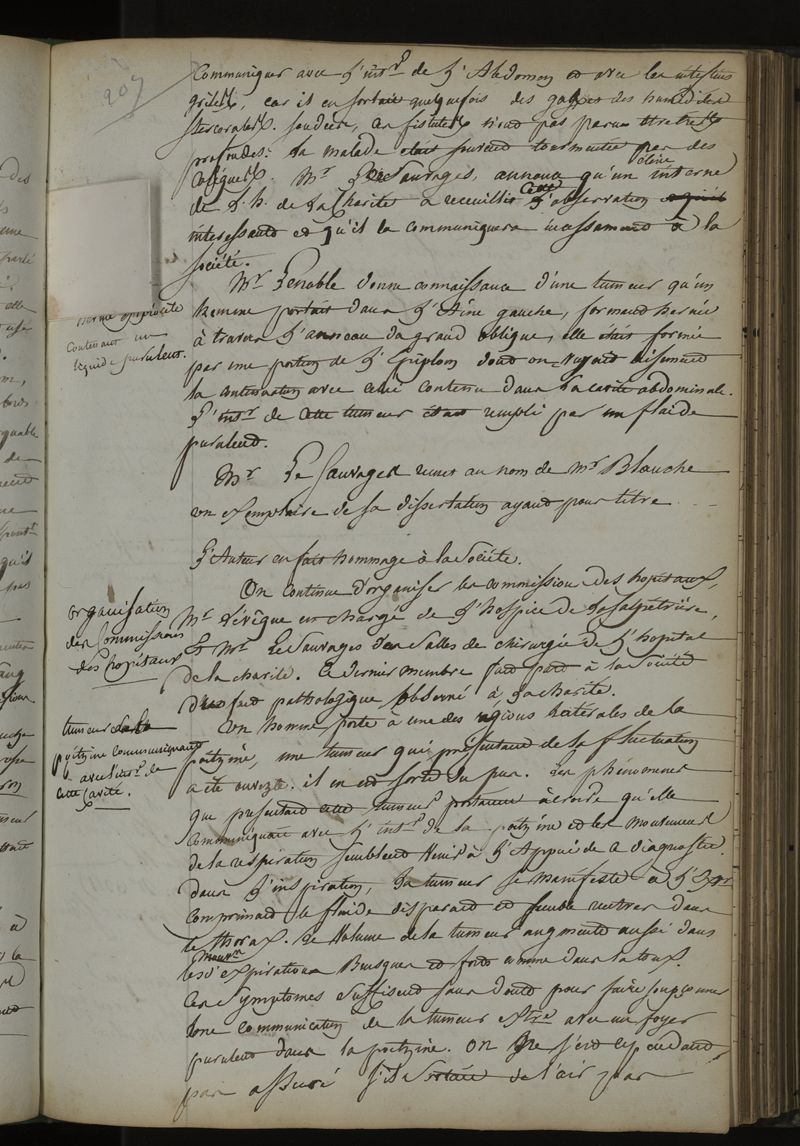 207
Communiquer avec l'intr de l'Abdomen et avec les intestins
grêles, car il en sortait quelquefois des gaz et des humidités
stercorales. sondées, ces fistules n'ont pas paru être très
profondes. la malade était souvent tourmentée par des
coliques. Mr LeSauvages, annonce qu'un élève interne
de l'h. de la Charité a recueilli cette observation
intéressante et qu'il la communiquera incessamment à la
société.
Mr Lenoble donne connaissance d'une tumeur qu'un
homme portait dans l'Aîne gauche, formant hernie
à travers l'anneau du grand oblique, elle était formée
par une portion de l'Epiploon dont on voyait aisément
la continuation avec celui contenu dans la cavité abdominale.
L'intr de cette tumeur était rempli par un fluide
purulent.
hernie épiploïte
contenant un
liquide purulent.
Mr Le Sauvages remet au nom de Mr Blanche
un exemplaire de sa dissertation ayant pour titre
L'Auteur en fait hommage à la Société.
organisation
des Commissions
des hopitaux
On continue d'organiser les commissions des hopitaux,
Mr Lévêque est chargé de l'hospice de la Salpêtrière,
et Mr LeSauvages des salles de chirurgie de l'hopital
de la charité. Ce dernier membre fait part à la Société
d'un fait pathologique observé à la charité.
tumeur de la
poitrine communiquant
avec l'intr de
cette cavité.
Un homme, porte à une des régions latérales de la
poitrine, une tumeur qui présentant de la fluctuation
a été ouverte. il en est sorti du pus. Les phénomènes
que présentait cette tumeur portaient à croire qu'elle
communiquait avec l'intr de la poitrine et les mouvemens
de la respiration semblent venir à l'Appui de ce diagnostic.
dans l'inspiration, la tumeur se manifeste à l'Extr
comprimant le fluide disparait et semble rentrer dans
le thorax. Le Volume de la tumeur augmente aussi dans
les mouvmens d'expiration Brusques et forts comme dans la toux.
Ces Symptomes suffisent sans doute pour faire soupçonner
une communication de la tumeur extre avec un foyer
purulent dans la poitrine. On ne s'est cependant
pas assuré s'il sortait de l'air par